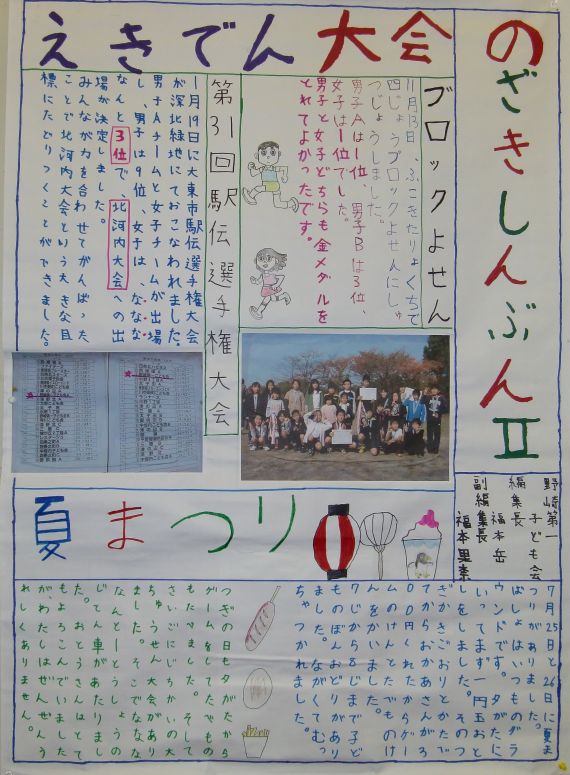 のざきしんぶんⅡ
えきでん大会
ブロックよせん
11月13日、ふこきたりょくちで
四じょうブロックよせんにしゅ
つじょうしました。
男子Aは1位、男子Bは3位、
女子は1位でした。
男子と女子どちらも金メダルを
とれてよかったです。
第31回駅伝選手権大会
1月19日に大東市駅伝選手権大会
が深北緑地にておこなわれました。
男子Aチームと女子チームが出場
し、男子は9位、女子は、ななな
なんと3位で、北河内大会への出
場が決定しました。
みんなが力を合わせてがんばった
ことで北河内大会という大きな目
標にたどりつくことができました。
野崎第一
子ども会
編集長
福本岳
副編集長
福本里奈
夏まつり
7月25日と26日に夏ま
つりがありました。
ばしょはいつものグラ
ウンドです。夕がたに
いってまず一円玉おと
しをしました。そのつ
ぎかきごおりとかたで
てからおかあさんがろ
00円くれたからゲー
ムのけんとたべものけ
んをかいました。
7じから8じまで子ど
ものぼんおどりがあり
ました。ながくてむっ
ちゃつかれました。
つぎの日も夕がたから
ゲームをしてたべもの
もたべました。そして
さいごにじちかいの大
ちゅうせん大会があり
ました。そこでななな
なんと一とうしょうの
じてん車があたりまし
た。おとうさんはとて
もよろこんでいました
が、わたしはぜんぜんう
れしくありません。